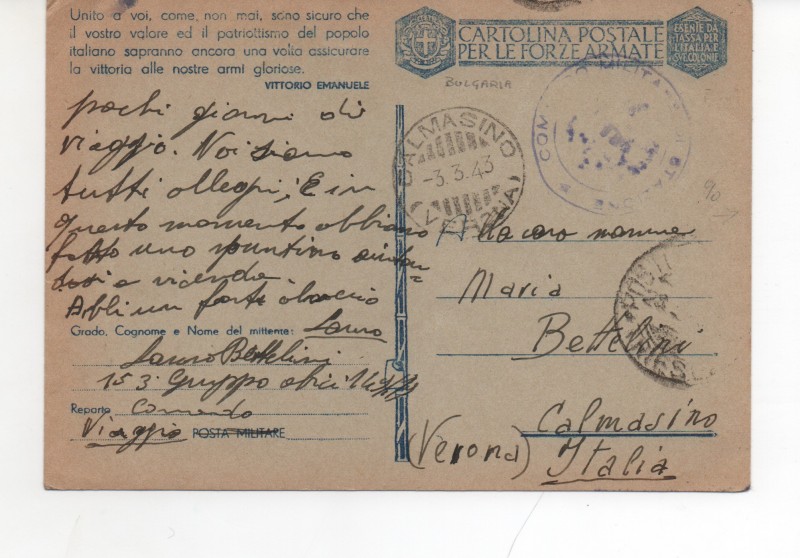 Unito a voi, come, non mai, sono sicuro che
il vostro valore ed il patriottismo del popolo
italiano sapranno ancora una volta assicurare
la vittoria alle nostre armi gloriose.
VITTORIO EMANUELE
pochi giorni di
viaggio. Noi siamo
tutti allegri; E in
questo momento abbiamo
fatto uno spuntino
a vicenda
Abbi un forte abraccio
Lauro
Grado, Cognome e Nome del mittente:
Lauro Bettelini
153 Gruppo
Reparto Comando
Viaggio POSTA MILITARE
CARTOLINA POSTALE
PER LE FORZE ARMATE
ESENTE DA
TASSA PER
L'ITALIA E
SUE COLONIE
BULGARIA
CALMASINO
-3.3.43
(VERONA)
COMANDO MILITARE DI STAZIONE
90
Alla cara mamma
Maria
Bettelini
Calmasino
(Verona) Italia